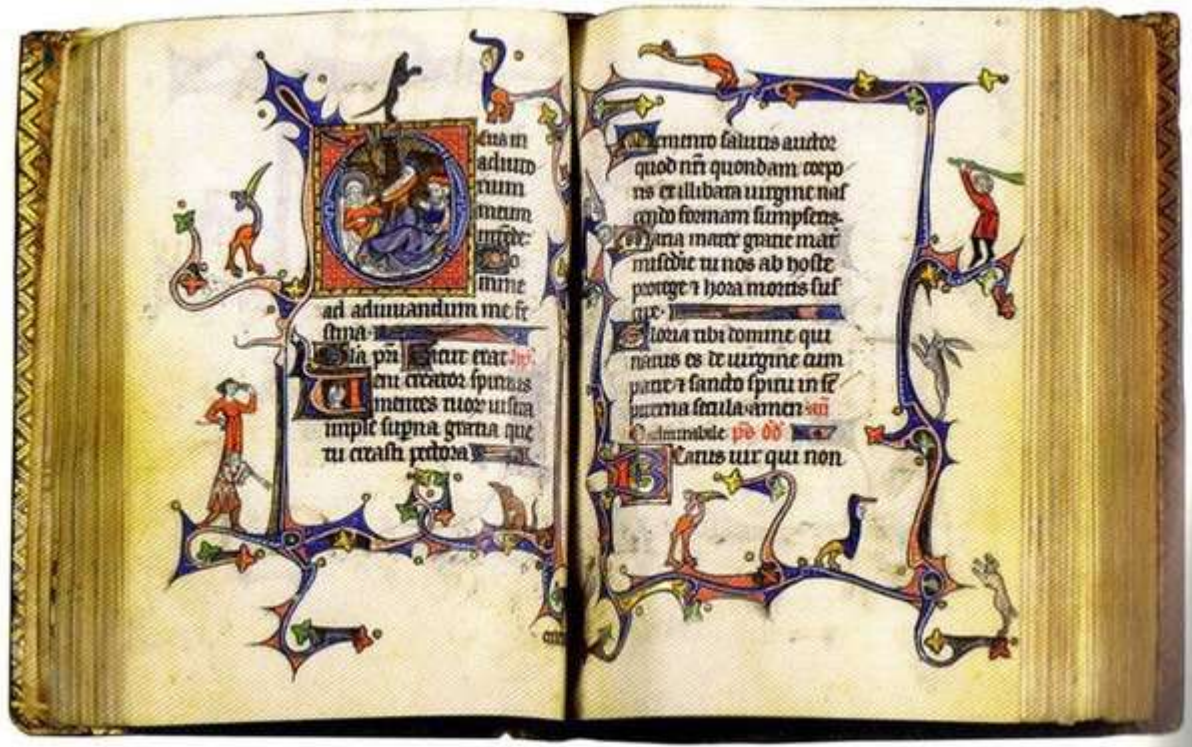 eus in
adiuto
rium
meum
intende:
Do
mine
ad adiuuandum me fe
stina.
Gła pri Sicut erat. hÿ.
Ueni creator spiritus
mentes tuor uisita
imple supna gratia que
tu creasti pectora
Memento salutis auctor
quod nri quondam corpo
ris ex illibata uirgine nas
cendo formam sumpseris.
Maria mater gratie mat
misedie tu nos ab hoste
protege ⁊ hora mortis sus
cipe.
Gloria tibi domine qui
natus es de uirgine cum
patre ⁊ sancto spiritu in se
piterna secula. amen añ
O admirabile ps dd
Beatus uir qui non